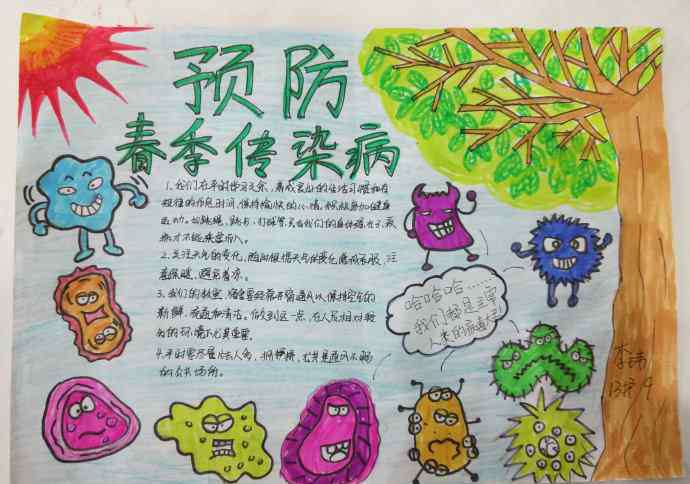 预防
春季传染病
1、我们在平时学习之余，养成良好的生活习惯和有
规律的作息时间，保持愉快的心情。积极参加健身
运动。如跳绳，跑步，打球等，只有我们的身体强壮了，疾
病才不能乘虚而入。
2、关注天气的变化，随时根据天气的变化增减衣服，注
意保暖，避免着凉。
3、我们的教室，宿舍要经常开窗通风以保持空气的
新鲜，
做到这一点，在人员相对较
的环境下尤其重要。
4、平时要尽量
人多，拥挤，尤其是通风不畅
的公共场所。
哈哈哈……
我们都是主宰
人类的